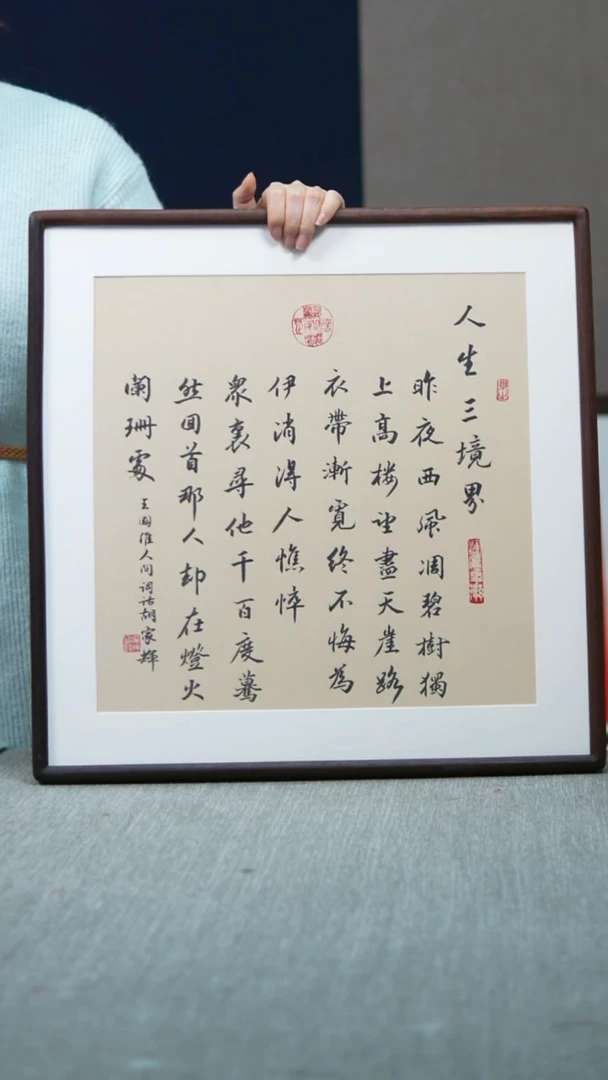 人生三境界
昨夜西風凋碧樹獨
上高楼望盡天崖路
衣帶漸寬終不悔為
伊消得人憔悴
衆裏尋他千百度驀
然回首那人却在燈火
闌珊處
王国维人间词话胡家輝